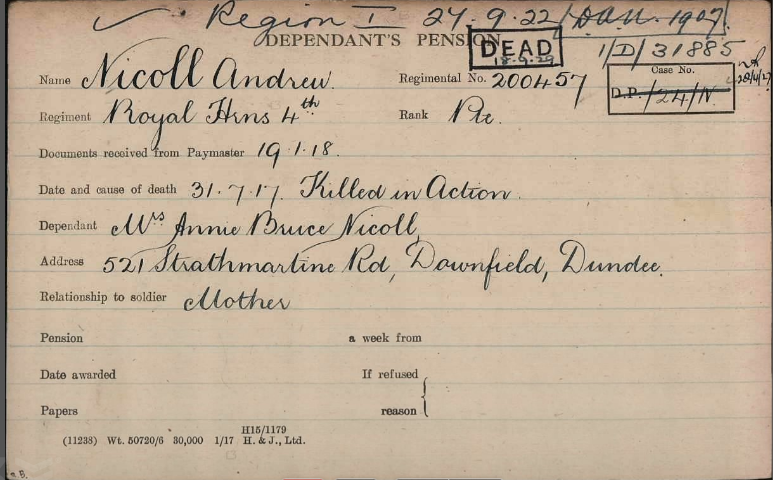 Region I 27.9.22 / D.A.N. 1907/
DEPENDANT'S PENSION
DEAD
1/D/31885
Name Nicoll Andrew. Regimental No. 200457
Case No.
D.P. /24/N
Regiment Royal Hrns 4th Rank Pte.
Documents received from Paymaster 19.1.18.
Date and cause of death 31.7.17. Killed in Action.
Dependant Mrs Annie Bruce Nicoll,
Address 521 Strathmartine Rd, Downfield, Dundee.
Relationship to soldier Mother
Pension a week from
Date awarded If refused
Papers reason
H15/1179
(11238) Wt. 50720/6 30,000 1/17 H. & J., Ltd.